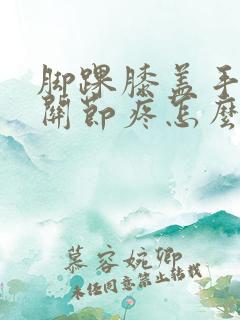 脚踝膝盖手
關節疼怎麼
慕容婉卿
未经同意禁止转载